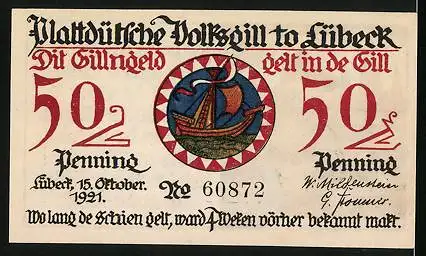 Plattdütsche Volksgill to Lübeck
Dit Gillngeld gelt in de Gill
50 50
Penning Penning
Lübeck, 15. Oktober.
1921.
No 60872
Wo lang de Schien gelt, ward 4 Weken vörher bekannt makt.